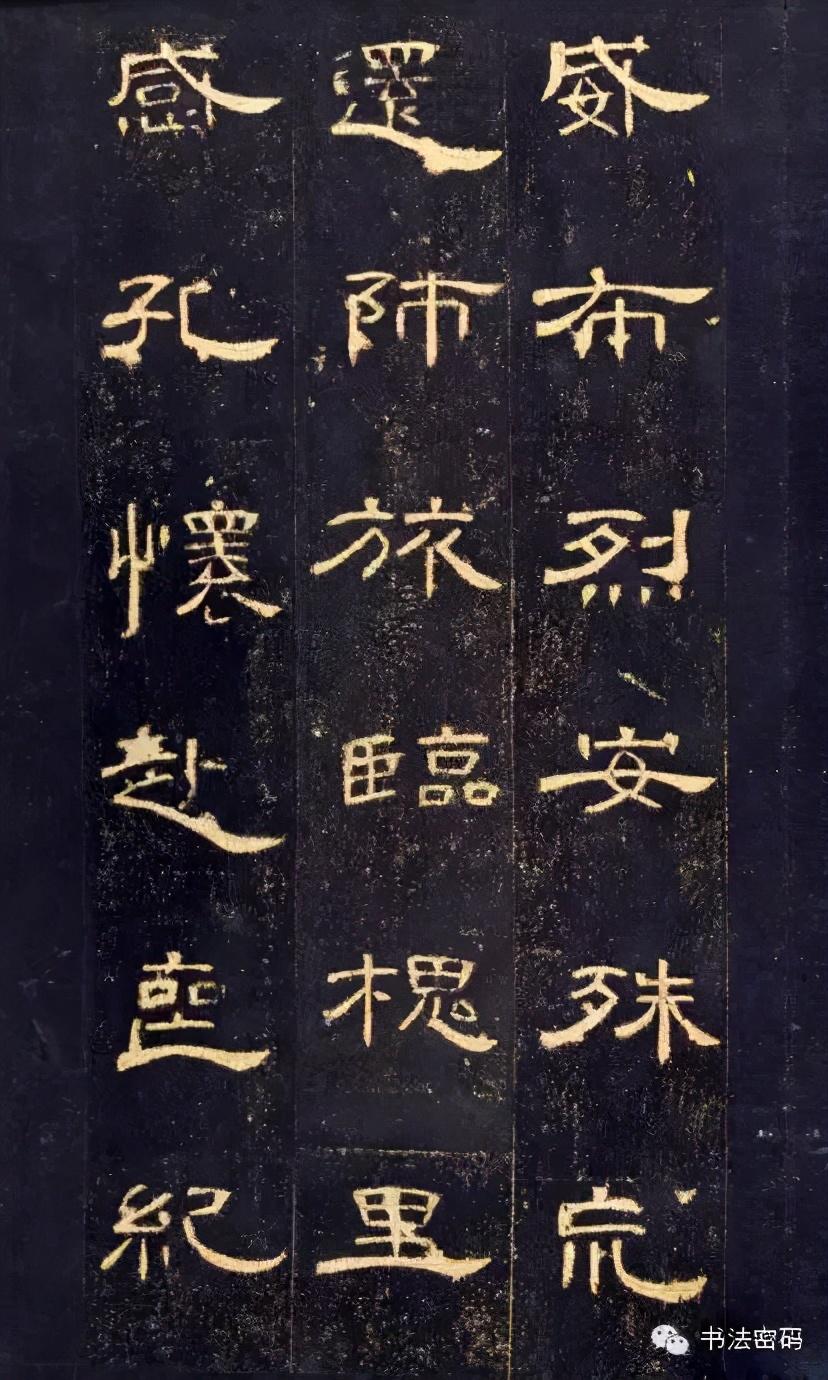 威布烈安殊巟
還師旅臨槐里
感孔懷赴喪紀
书法密码